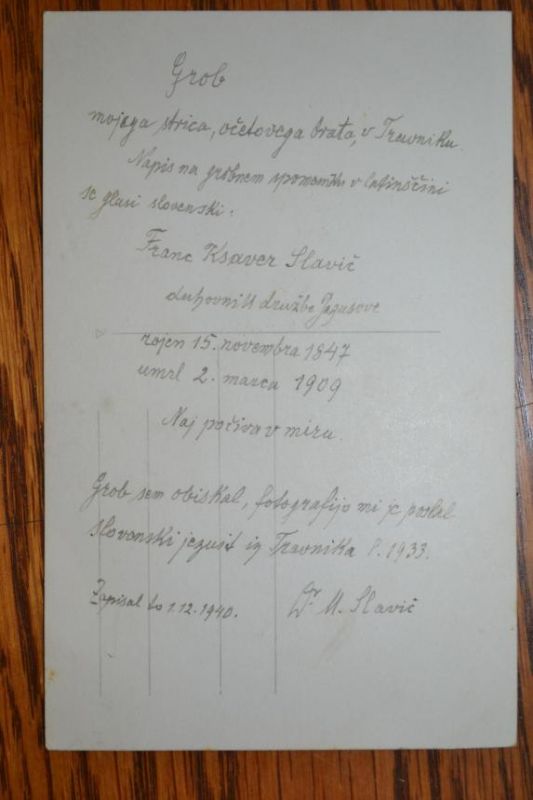 Grob
mojega strica, očetovega brata, v Travniku.
Napis na grobnem spomeniku v latinščini
se glasi slovenski:
Franc Ksaver Slavič
duhovnik družbe Jezusove
rojen 15. novembra 1847
umrl 2. marca 1909
Naj počiva v miru.
Grob sem obiskal, fotografijo mi je poslal
slovenski jezuit iz Travnika l. 1933.
Zapisal to 1.12.1940. Dr M. Slavič